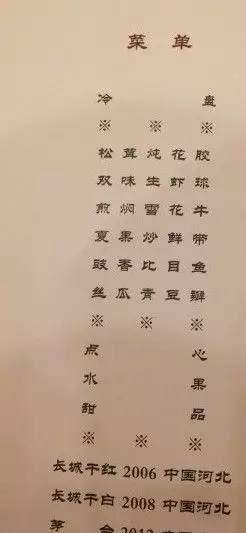 菜 单
冷 盘
※ ※ ※
松 茸 炖 花 胶
双 味 生 虾 球
煎 焖 雪 花 牛
夏 果 炒 鲜 带
豉 香 比 目 鱼
丝 瓜 青 豆 瓣
※ ※ ※
点 心
水 果
甜 品
※ ※ ※
长城干红 2006 中国河北
长城干白 2008 中国河北
茅